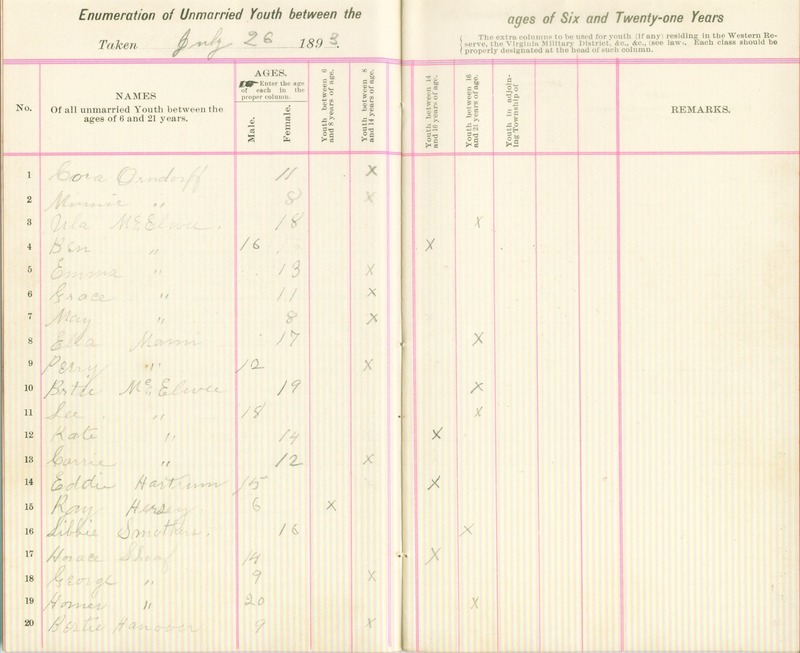 Enumeration of Unmarried Youth between the ages of Six and Twenty-one Years
Taken July 26 1893.
The extra columns to be used for youth (if any) residing in the Western Re-
serve, the Virginia Military District, &c., &c., (see law). Each class should be
properly designated at the head of such column.
No.
NAMES
Of all unmarried Youth between the
ages of 6 and 21 years.
AGES.
Enter the age
of each in the
proper column.
Male.
Female.
Youth between 6
and 8 years of age.
Youth between 8
and 14 years of age.
Youth between 14
and 16 years of age.
Youth between 16
and 21 years of age.
Youth in adjoin-
ing Township of
REMARKS.
1 Cora Orndorff 11 x
2 Minnie " 8 x
3 Ula McElwee. 18 x
4 Ben " 16 x
5 Emma " 13 x
6 Grace " 11 x
7 May " 8 x
8 Ella Mann 17 x
9 Perry " 12 x
10 Bertie McElwee 19 x
11 Lee " 18 x
12 Kate " 14 x
13 Carrie " 12 x
14 Eddie 15 x
15 Ray Hersey 6 x
16 Libbie Smothers. 16 x
17 Horace 14 x
18 George " 9 x
19 Homer " 20 x
20 Bertie Hanover 9 x